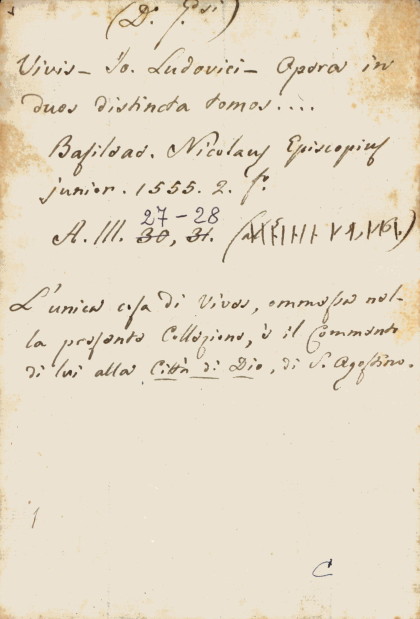 (D. Gsi)
Vivis - Io. Ludovici - Opera in
duos distincta tomos....
Basileae. Nicolaus Episcopius
junior. 1555. 2. fo.
27 - 28
A. III. 30, 31.
L'unica cosa di Vives, ommessa nel-
la presente Collezione, è il Commento
di lui alla Città di Dio, di S. Agostino.
C